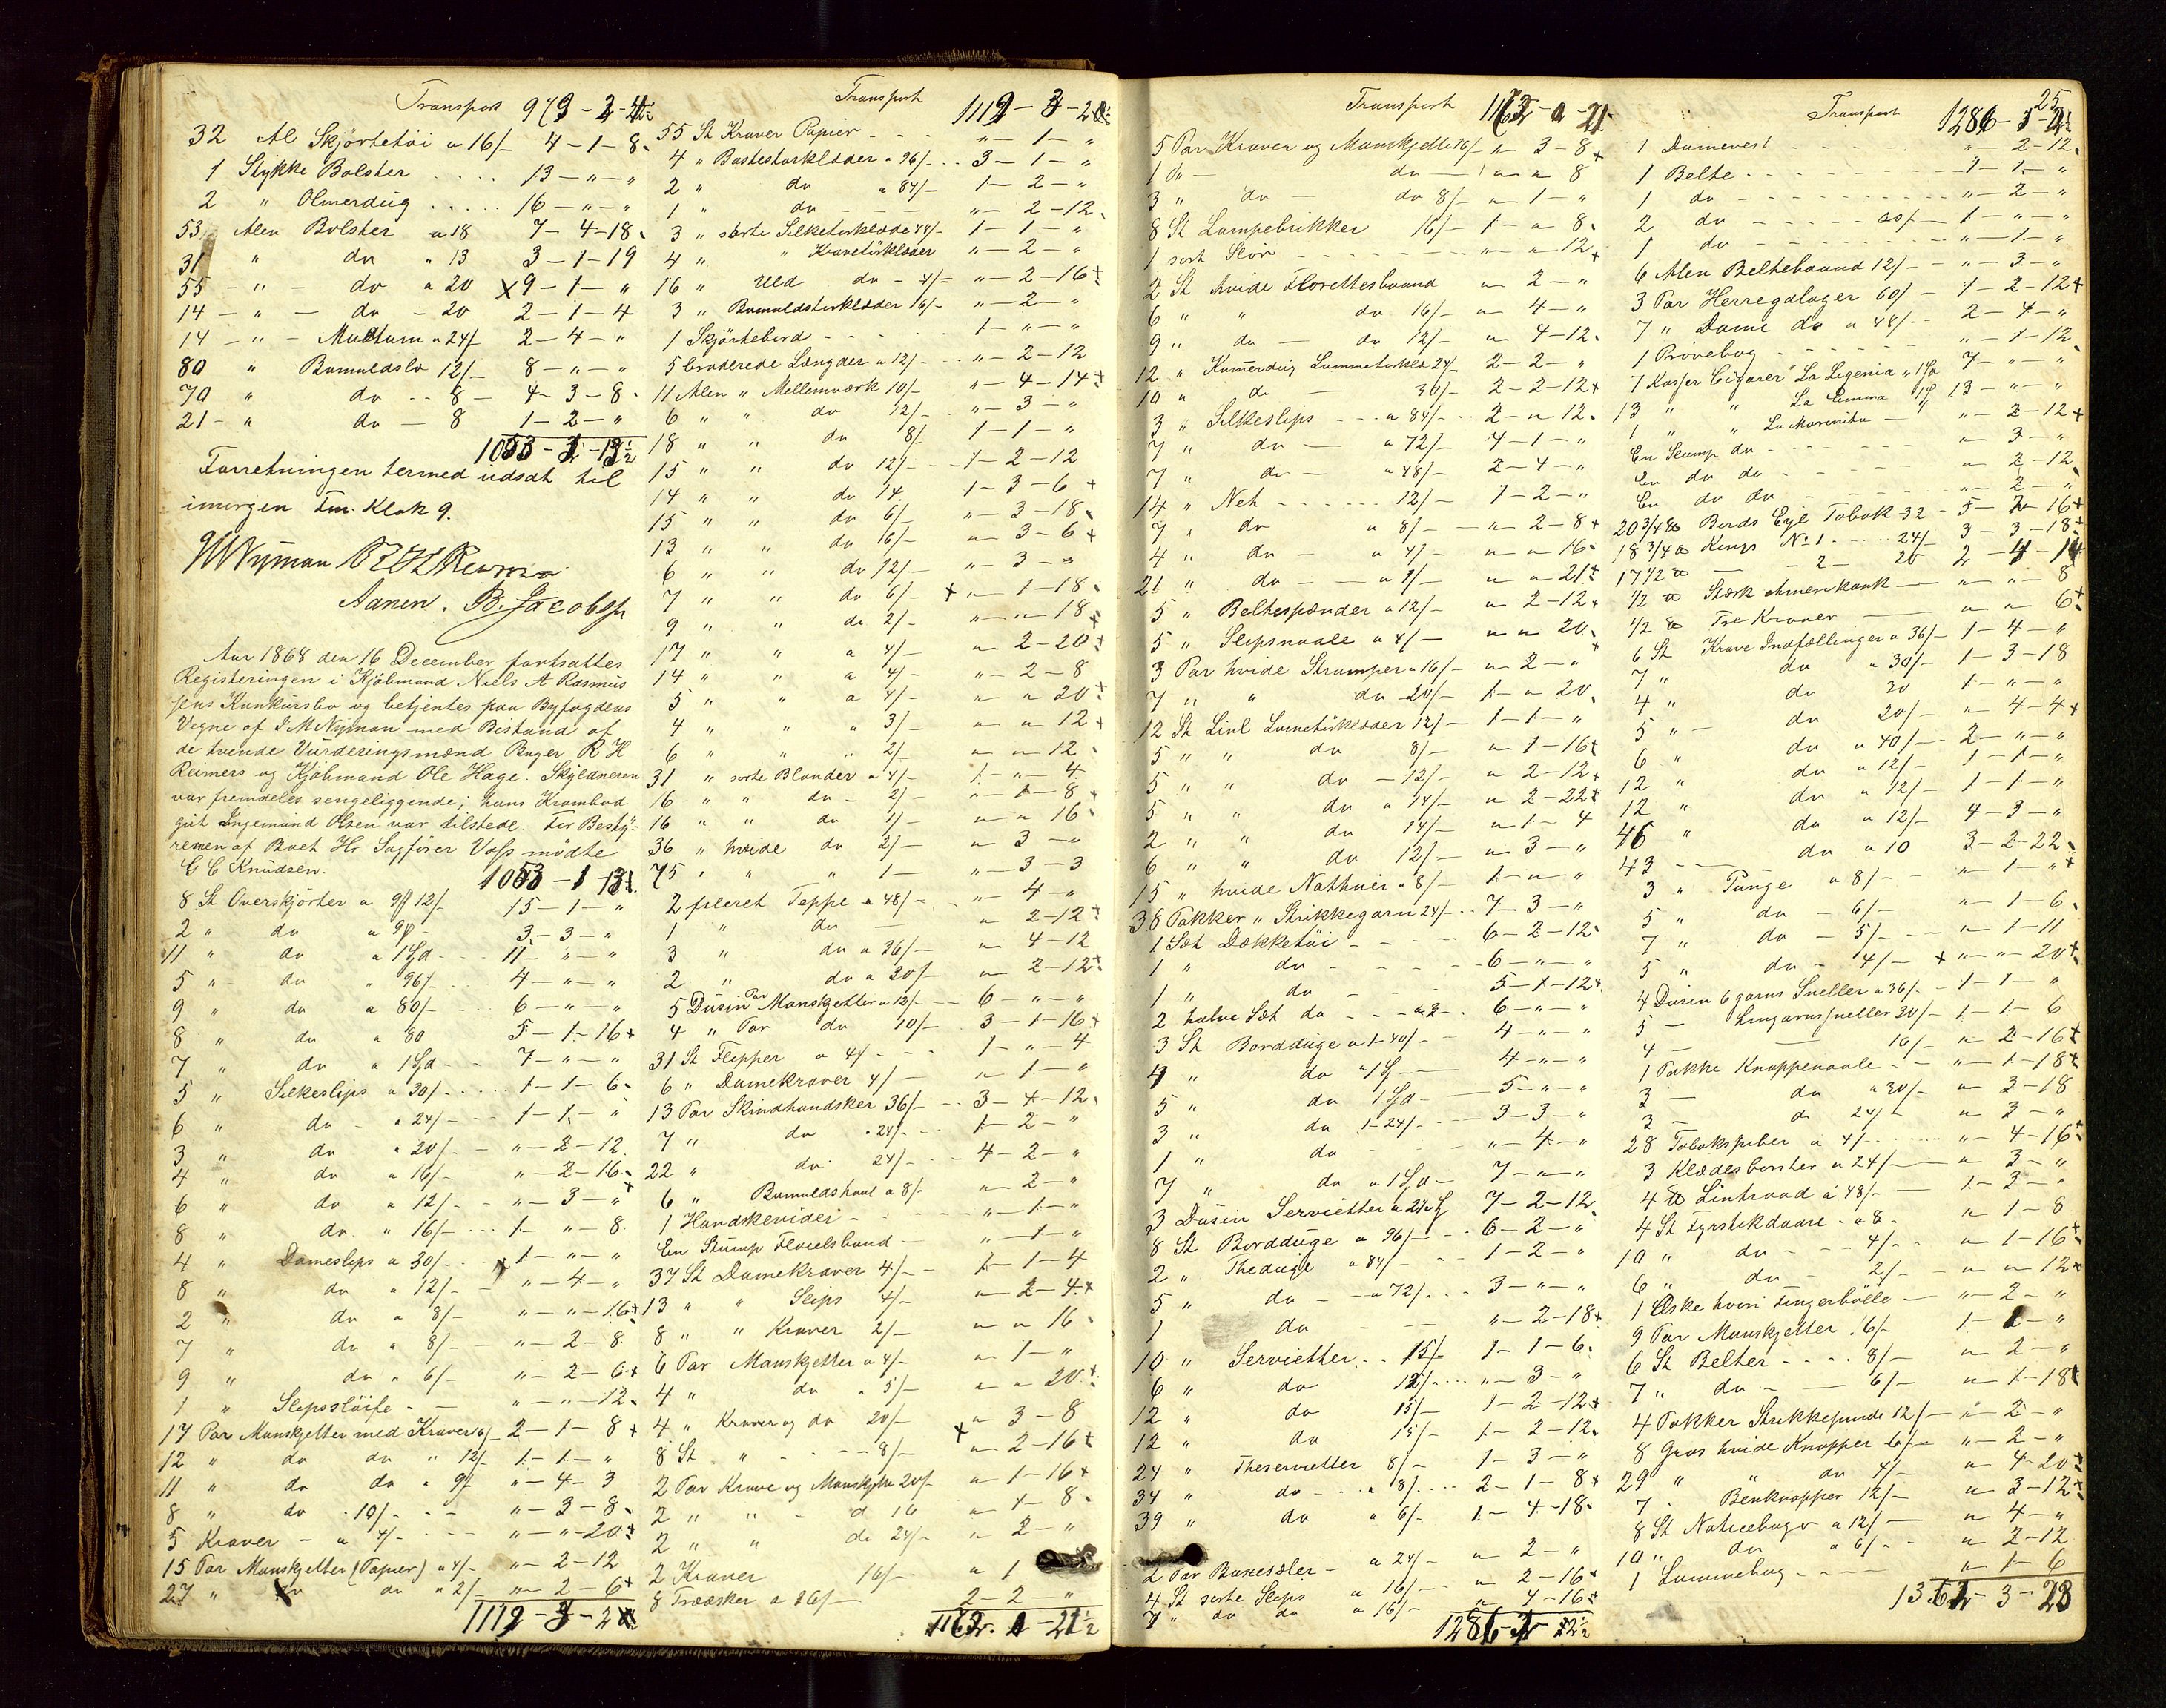 Transport 973-2-4½
32 Al Skjørtetøi a 16/- 4-1-8
1 Stykke Bolster .... 13-"-"
2 " Olmerdug ..... 16-"-"
53 Alen Bolster a 18 7-4-18
31 " do " 13 3-1-19
55 - " - do a 20 X 9-1-"
14 - " - do - 20 2-1-4
14 - " - Multum a 24/- 2-4-"
80 " Bomuldslo 12/- 8-"-"
70 " do -- 8 - 4-3-8
21 - " do - 8 1-2-"
Forretningen termed udsat til
imorgen Fm. Klok 9.
Aanen. B. Jacobsen
Aar 1868 den 16 December fortsattes
Registeringen i Kjøbmand Niels A Rasmus
sens Konkursbo og betjentes paa Byfogdens
Vegne af I M Nyman med Bistand af
de tvende Vurderingsmænd Bager R H
Reimers og Kjøbmand Ole Hage. Skyldneren
var fremdeles sengeliggende; hans Krambod
gut Ingemund Olsen var tilstede. For Besty=
relsen af Boet Hr Sagfører Voss mødte
C C Knudsen.
1053-1-13½
8 St Overskjorter a 9 12/- 15-1-"
2 " do 3-3-"
11 " do a 1 Spd -- 11-"-"
5 " do " 96/- 4-"-"
9 " do a 80/- 6-"-"
8 " do a 80 5-1-16
7 " do a 1 Spd -- 7-"-"
5 " Silkeslips a 30/- .... 1-1-6
6 " do " 24/- -- 1-1-"
3 " do " 20/- "-2-12
4 " do a 16/- "-2-16
6 " do a 12/- "-3-"
8 " do " 16/- ... 1-"-8
4 " Dameslips a 30/- ... 1-"-"
8 " do " 12/- "-4-"
2 " do a 8/- "-"-16
7 " do " 8/- "-2-8
9 " do " 6/- "-2-6
1 " Slipssløife - - "-"-12
17 Par Manskjetter med Kraver 16/- 2-1-8
12 " do do " 12/- 1-1-"
11 " do do " 9/- "-4-3
8 " do - 10/- -- "-3-8
5 Kraver - a 4/- "-"-20
15 Par Manskjetter (Papier) a 4/- "-2-12
27 " do do a 2/- "-2-6

Transport 1112-3-2
55 St Kraver Papier - - - "-1-"
4 " Bastestørklæder a 96/- .. 3-1-"
2 " do a 84/- 1-2-"
1 " do - - - "-2-12
3 " sorte Silketørklæde 48/- 1-1-"
4 " " Kravetörklæder "-2-"
16 " Uld do - 4/- "-2-16
3 " Bomuldstørklæder 16/- "-2-"
1 Skjörtebord - - - 1-"-"
5 broderede Længder a 12/- .. "-2-12
11 Alen " Mellemværk 10/- "-4-14
6 " " do 12/- "-3-"
18 " " do 8/- 1-1-"
15 " " do 12/- - 1-2-12
14 " " do 14. 1-3-6
15 " " do 6/- "-3-18
13 " " do 6/- "-3-6
6 " " do 12/- "-3-"
7 " " do 6/- "-1-18
9 " " do 2/- "-"-18
17 " " a 4/- "-2-20
14 " " a 4/- "-2-8
5 " " a 4/- "-"-20
4 " " " 3/- "-"-12
6 " " " 2/- "-"-12
31 " sorte Blonder a 4/- 1-"-4
16 " " do - 2/- "-1-8
16 " " do 1/- "-"-16
36 " hvide do 2/- "-3-"
75 " " " 1- "-3-3
2 fileret Teppe a 48/- "-4-"
1 " do - "-2-12
3 " do a 36/- "-4-12
2 " do a 30/- "-2-12
5 Dusin Par Manskjetter a 12/- -- 6-"-"
4 " Par do 10/- 3-1-16
31 St Flipper a 4/- 1-"-4
6 " Damekraver 4/- "-1-"
13 Par Skindhandsker 36/- .. 3-4-12
7 " do " 24/- 1-2-"
22 " do 24/- 4-2-"
6 " Bomuldshaal a 8/- "-2-"
1 Handskevider - "-1-"
En Stump Fløielsbaand - "-1-"
37 St Damekraver 4/- 1-1-4
13 " " Slips 4/- "-2-4
8 " " Kraver 2/- "-"-16
6 Par Manskjetter a 4/- "-1-"
4 " do " 5/- "-"-20
4 " Kraver og do 20/- "-3-8
8 St " - - 8/- "-2-16
2 Par Krave og Manskjette 20/- "-1-16
2 " " - d 16 "-1-8
2 " " do 24/- "-2-"
2 Kraver 16/- "-1
8 Træsker a 36/- 2-2-"

Transport
5 Par Kraver og Manskjette 16/- "-3-8
1 " - do - "-"-8
3 " do - do 8/- "-1-"
8 St Lampebrikker 16/- 1-"-8
1 sort Slör - - - "-"-12
2 St hvide Florettesbaand "-2-"
6 " " do 16/- "-4-"
9 " do - do 12/- "-4-12
12 " Kamerdug Lommetørklæ 24/- 2-2-"
10 " do - 30/- 2-2-12
3 " Silkeslips - - a 84/- .. 2-"-12
7 " do - a 72/- 4-1-"
7 " do - a 48/- 2-4-"
14 " Net - - - - 12/- 1-2-"
7 " do a 8/- - "-2-8
4 " do - a 4/- "-"-16
21 " do - - a 1/- "-"-21
5 " Beltespænder a 12/- "-2-12
5 " Slipsnaale a 4/- "-"-20
3 Par hvide Strømper a 16/- "-2-"
7 " " do 20/- 1-"-20
12 St Linl Lometörklæder 12/- 1-1-"
5 " " do 8/- "-1-16
5 " " do - 12/- "-2-12
5 " " do a 14/- "-2-22
2 " " do 14/- "-1-4
6 " " do 12/- "-3-"
15 " hvide Nathuer a 8/- 1-"-"
38 Pakker " Strikkegarn 24/- .. 7-3-"
1 Sæt Dækketöi - - - 6-2-12
1 " do - - - 6-"-"
1 " do - - 5-1-12
2 halve Sæt do - - - a 3 - 6-"-"
3 St Bordduge a 1-40/- - 4-"-"
4 " do a 1 S - - 4-"-"
5 " do 1 Spd - 5-"-"
3 " do 1-24/- -- 3-3-"
1 " do - - - "-4-"
7 " do a 1 Spd - 7-"-"
3 Dusin Servietter a 2½ S 7-2-12
8 St Bordduge a 96/- - 6-2-"
2 " Theduge a 84/- - 1-2-"
5 " do - - a 72/- ... 3-"-"
1 do - - "-2-18
10 " Servietter .. 15/- 1-1-6
6 " do 12/- ... "-3-"
12 " do 15/- 1-2-12
12 " do 15/- 1-2-12
24 " Theservietter 8/- 1-3-"
34 " do - - a 8/- ... 2-1-8
39 " do a 6/- 1-4-18
2 Par Buxesæler - a 24/- "-2-"
4 St sorte Slips a 16/- "-2-16
7 " do do a 16/- "-4-16

25
Transport
1 Damevest - - - "-2-12
1 Belte - - - 1-1-"
1 do - - - "-2-"
2 do - - - 60/- 1-"-"
1 do - - - "-1-"
6 Alen Beltebaand 12/- - "-3-"
3 Par Herregalager 60/- 1-2-12
7 " Dame do a 48/- 2-4-"
1 Prövebog - - - "-1-12
7 Kasser Cigarer " La Ligenia a 1 Spd 7-"-"
13 " " La Emma 13-"-"
1 " " La Morenita - "-2-12
En Slump do - - "-3-"
En do do - - "-2-12
En do do - - "-2-"
20 3/4 lb Birds Eye Tobak 32 - 5-3-16
18 3/4 lb Kings No 1 .... 24/- 3-3-18
17 1/2 lb - - 2 - 20
1/2 lb Stærk Amerikansk - "-"-8
1/2 lb Tre Kroner - "-"-6
6 St Krave Indfællinger a 36/- 1-4-"
7 " do a 30/- 1-3-18
4 " do 30 1-"-"
5 " - do 20/- "-4-4
6 " do a 40/- 2-"-"
12 " do a 12/- 1-1-"
12 " do a 12/- 1-1-"
46 " do a 12/- 4-3-"
43 - do a 10 3-2-22
3 " Punge a 8/- - "-1-"
5 " do - 6/- "-1-6
7 " do - 5/- "-1-11
5 " do - 4/- "-"-20
4 Dusin 6 garns Sneller a 36/- 1-1-"
5 - Lingarnssneller 30/- 1-1-6
4 - - 16/- "-2-16
1 Pakke Knappenaale - - "-1-18
3 - do a 30/- "-3-18
3 - do 24/- "-3-"
28 Tobakspiber a 4/- ..... "-4-16
3 Klædesborster a 24/- "-3-"
4 lb Lintraad á 48/- 1-3-"
4 St Fyrstikdaase - a 8 - "-1-8
10 " do - - 4/- "-1-16
6 " do - 2/- "-"-12
1 Æske hvori Fingerbölle - "-2-"
9 Par Manskjetter .16/-
6 St Belter - - - 8/- "-2-"
7 " do - - 6/- "-1-18
4 Pakker Strikkepinde 12/- "-2-"
8 Gros hvide Knapper 6/- "-2-"
29 " " do 4/- "-4-20
7 - Benknapper 12/- "-3-12
8 St Noticebøger a 12/- "-4-"
10 " do a 6/- "-2-12
1 Lommebog - - - "-1-6